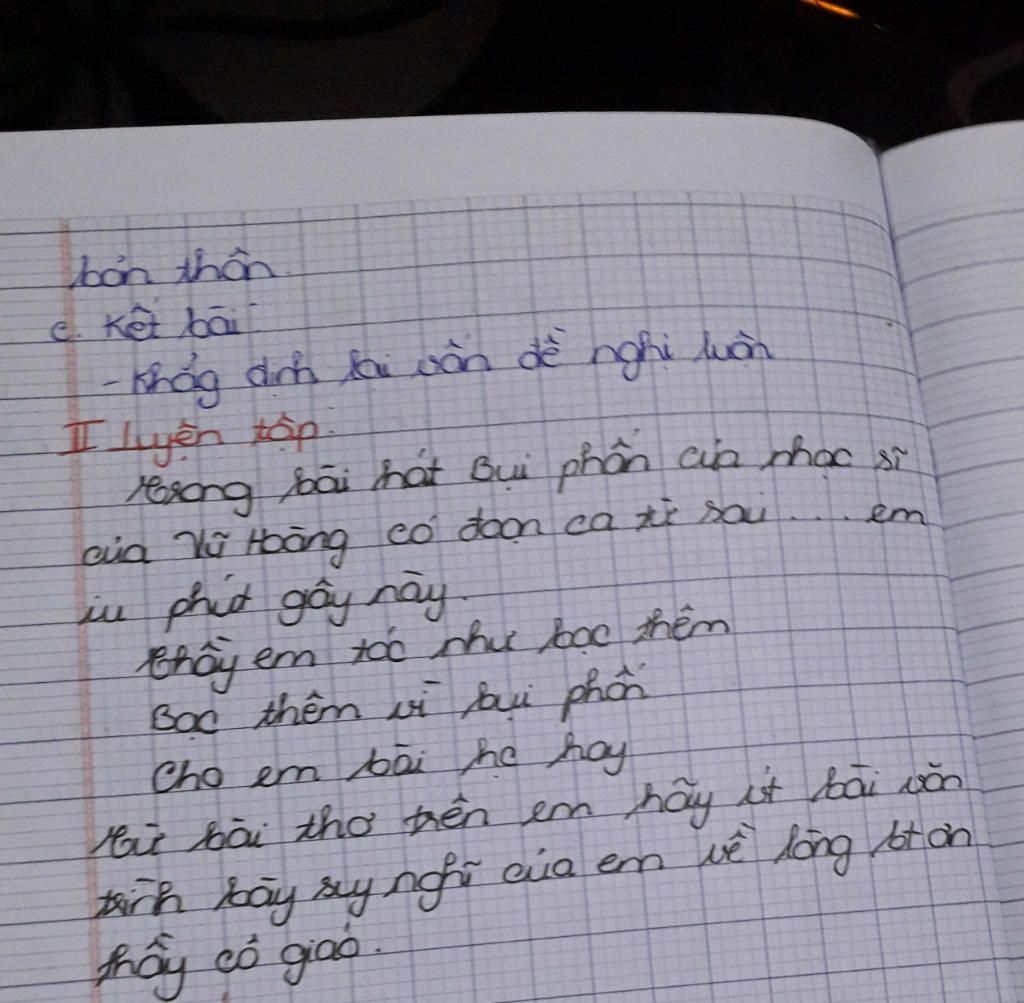 bản thân.
c. Kết bài
- Khẳg định lại vấn đề nghị luận
II Luyện tập.
Trong bài hát Bụi phấn của nhạc sĩ
của Vũ Hoàng có đoạn ca từ sau .... em
iu phút gây này.
Thầy em tóc như bạc thêm
Bạc thêm vì bụi phấn
Cho em bài họ hay
Từ bài thơ trên em hãy ít bài văn
trình bày suy nghĩ của em về lòng bt ơn
thầy cô giaó.